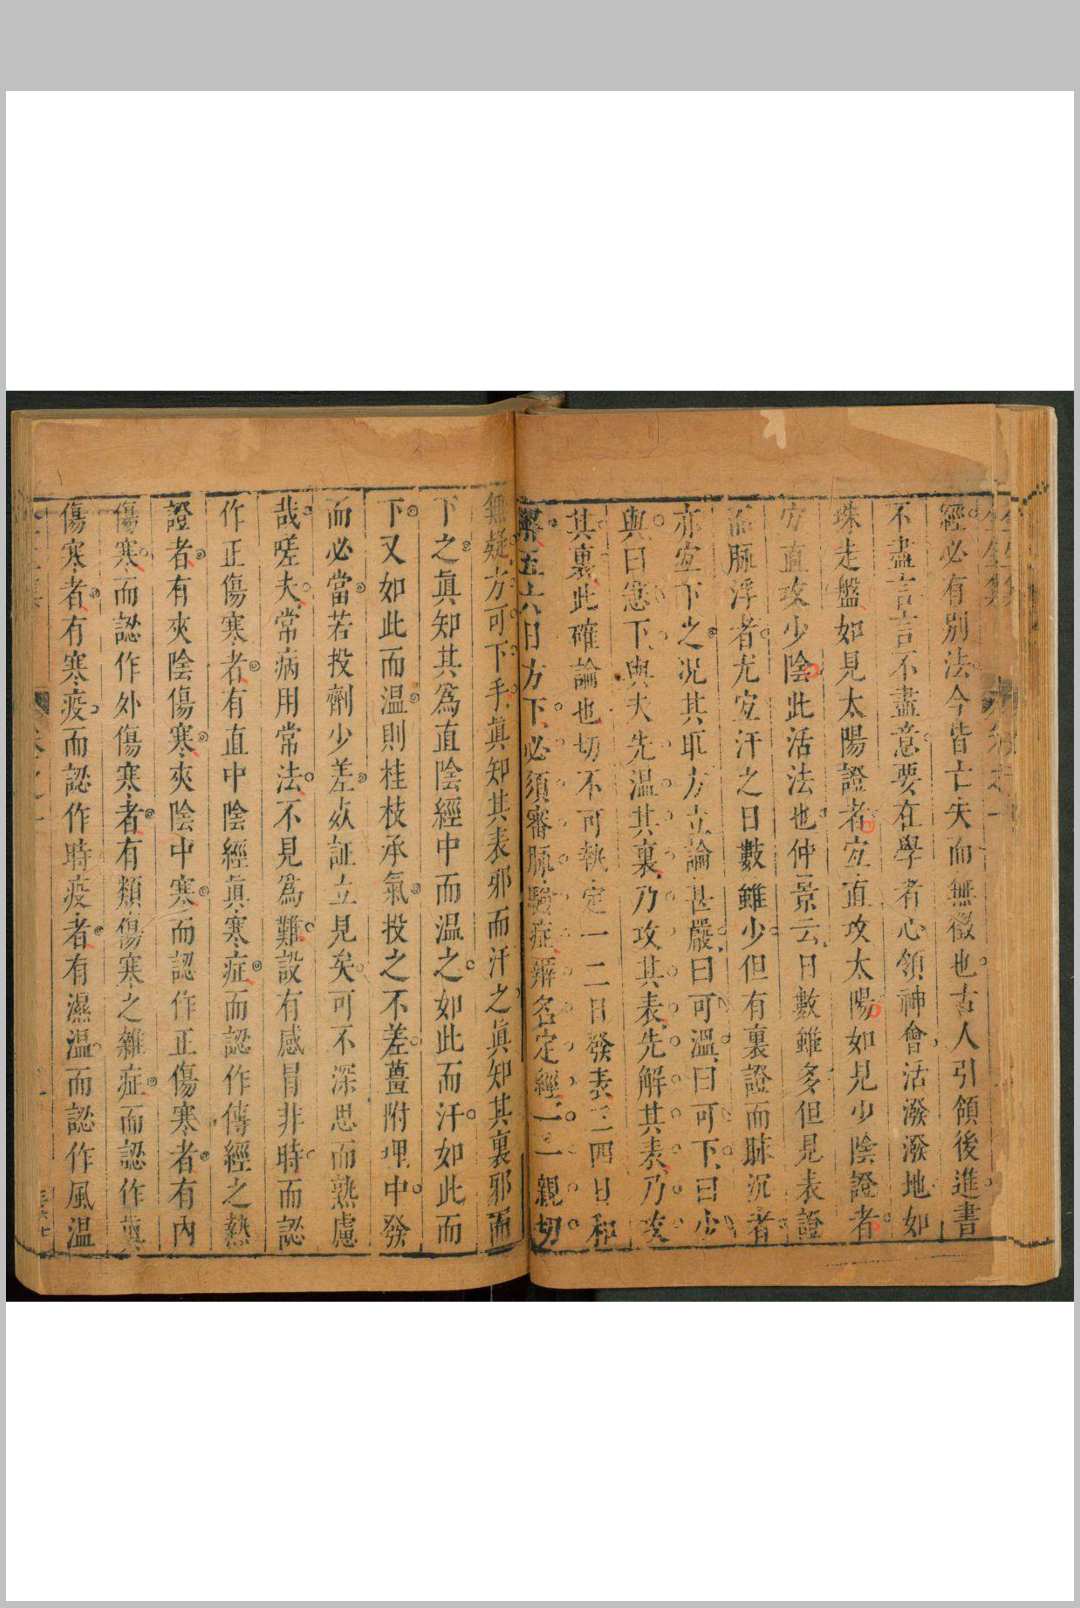 經必有別法今皆亡失而無徵也古人引領後進書
不盡言言不盡意要在學者心領神會活潑潑地如
珠走盤如見太陽證者宜直攻太陽如見少陰證者
宜直攻少陰此活法也仲景云日數雖多但見表證
而脉浮者尤宜汗之日數雖少但有裏證而脉沉者
亦宜下之况其取方立論甚嚴曰可溫曰可下曰少
與曰急下與夫先温其裏乃攻其表先解其表乃攻
其裏此確論也切不可執定一二日發表三四日和
解五六日方下必須審脉驗症辨名定經一一親切
無疑方可下手眞知其表邪而汗之眞知其裏邪而
下之眞知其爲直陰經中而温之如此而汗如此而
下又如此而温則桂枝承氣投之不差薑附理中發
而必當若投劑少差𡙇証立見矣可不深思而熟慮
哉嗟夫常病用常法不見爲難設有感冒非時而認
作正傷寒者有直中陰經眞寒症而認作傳經之熱
證者有夾陰傷寒夾陰中寒而認作正傷寒者有內
傷寒而認作外傷寒者有類傷寒之雜症而認作眞
傷寒者有寒疫而認作時疫者有濕温而認作風温